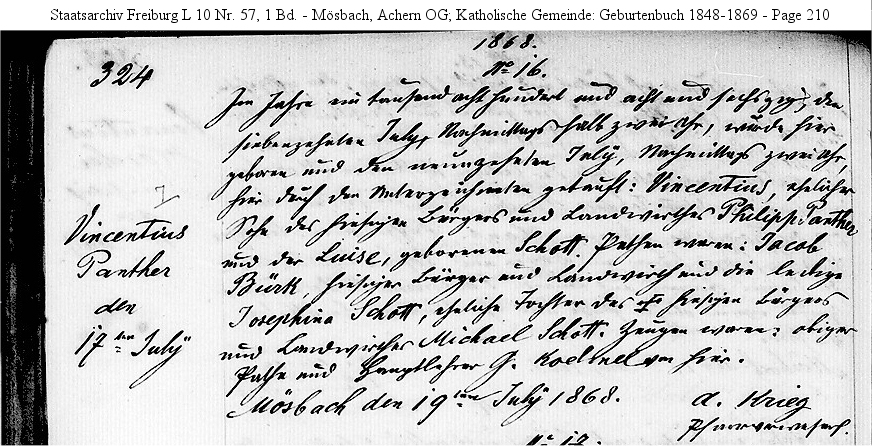 Staatsarchiv Freiburg L 10 Nr. 57, 1 Bd. - Mösbach, Achern OG; Katholische Gemeinde: Geburtenbuch 1848-1869 - Page 210
1868.
324
No 16.
Im Jahre ein tausend acht hundert und acht und sechszig, den
siebenzehnten July, Nachmittags halb zwei Uhr, wurde hier
geboren und den neunzehnten July, Nachmittags zwei Uhr,
hier durch den Unterzeichneten getauft: Vincentius, ehelicher
Sohn des hiesigen Bürgers und Landwirthes Philipp Panther
und der Luise, geborenen Schott. Pathen waren: Jacob
Bürk, hiesiger Bürger und Landwirth und die ledige
Josephina Schott, eheliche Tochter des † hiesigen Bürgers
und Landwirthes Michael Schott. Zeugen waren: obiger
Pathe und Hauptlehrer G. von hier.
Mösbach den 19ten July 1868.
A. Krieg
Pfarrverweser.
Vincentius
Panther
den
17ten July
No 17.